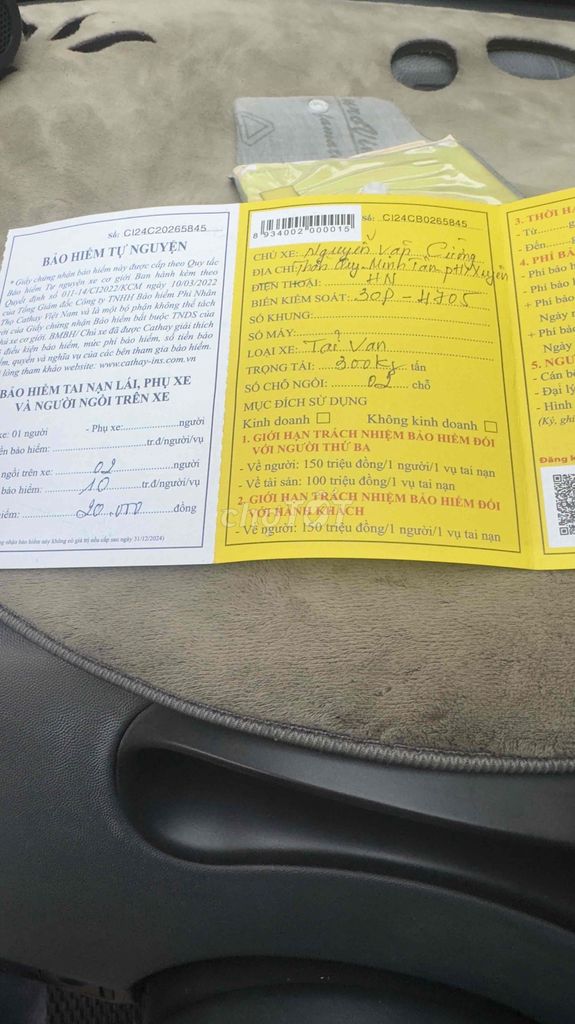 Số: CI24C20265845
BẢO HIỂM TỰ NGUYỆN
* Giấy chứng nhận bảo hiểm này được cấp theo Quy tắc
Bảo hiểm Tự nguyện xe cơ giới Ban hành kèm theo
Quyết định số 011-14/CI2022/XCM ngày 10/03/2022
của Tổng Giám đốc Công ty TNHH Bảo hiểm Phi Nhân
Thọ Cathay Việt Nam và là một bộ phận không thể tách
rời của Giấy chứng nhận Bảo hiểm bắt buộc TNDS của
chủ xe cơ giới. BMBH/ Chủ xe đã được Cathay giải thích
điều kiện bảo hiểm, mức phí bảo hiểm, số tiền bảo
hiểm, quyền và nghĩa vụ của các bên tham gia bảo hiểm.
lòng tham khảo website: www.cathay-ins.com.vn
BẢO HIỂM TAI NẠN LÁI, PHỤ XE
VÀ NGƯỜI NGỒI TRÊN XE
xe: 01 người - Phụ xe: người
bảo hiểm: tr.đ/người/vụ
ngồi trên xe: 02 người
bảo hiểm: 10 tr.đ/người/vụ
hiểm: 20.000 đồng
nhận bảo hiểm này không có giá trị nếu cấp sau ngày 31/12/2024)
8 934002 000015
Số: CI24CB0265845
CHỦ XE: Nguyễn Văn Cường
ĐỊA CHỈ: Thôn Minh Tân
ĐIỆN THOẠI: HN
BIỂN KIỂM SOÁT: 30P-4705
SỐ KHUNG:
SỐ MÁY:
LOẠI XE: Tải Van
TRỌNG TẢI: 300kg tấn
SỐ CHỖ NGỒI: 02 chỗ
MỤC ĐÍCH SỬ DỤNG
Kinh doanh Không kinh doanh
1. GIỚI HẠN TRÁCH NHIỆM BẢO HIỂM ĐỐI
VỚI NGƯỜI THỨ BA
- Về người: 150 triệu đồng/1 người/1 vụ tai nạn
- Về tài sản: 100 triệu đồng/1 vụ tai nạn
2. GIỚI HẠN TRÁCH NHIỆM BẢO HIỂM ĐỐI
VỚI HÀNH KHÁCH
- Về người: 150 triệu đồng/1 người/1 vụ tai nạn
chợ TỐT
3. THỜI H
- Từ
- Đến
4. PHÍ BẢ
- Phí bảo h
- Phí bảo
+ Phí bảo
Ngày
+ Phí bảo
Ngày
5. NGƯ
- Cán b
- Đại lý
- Hình
(Ký, ghi
Đăng k